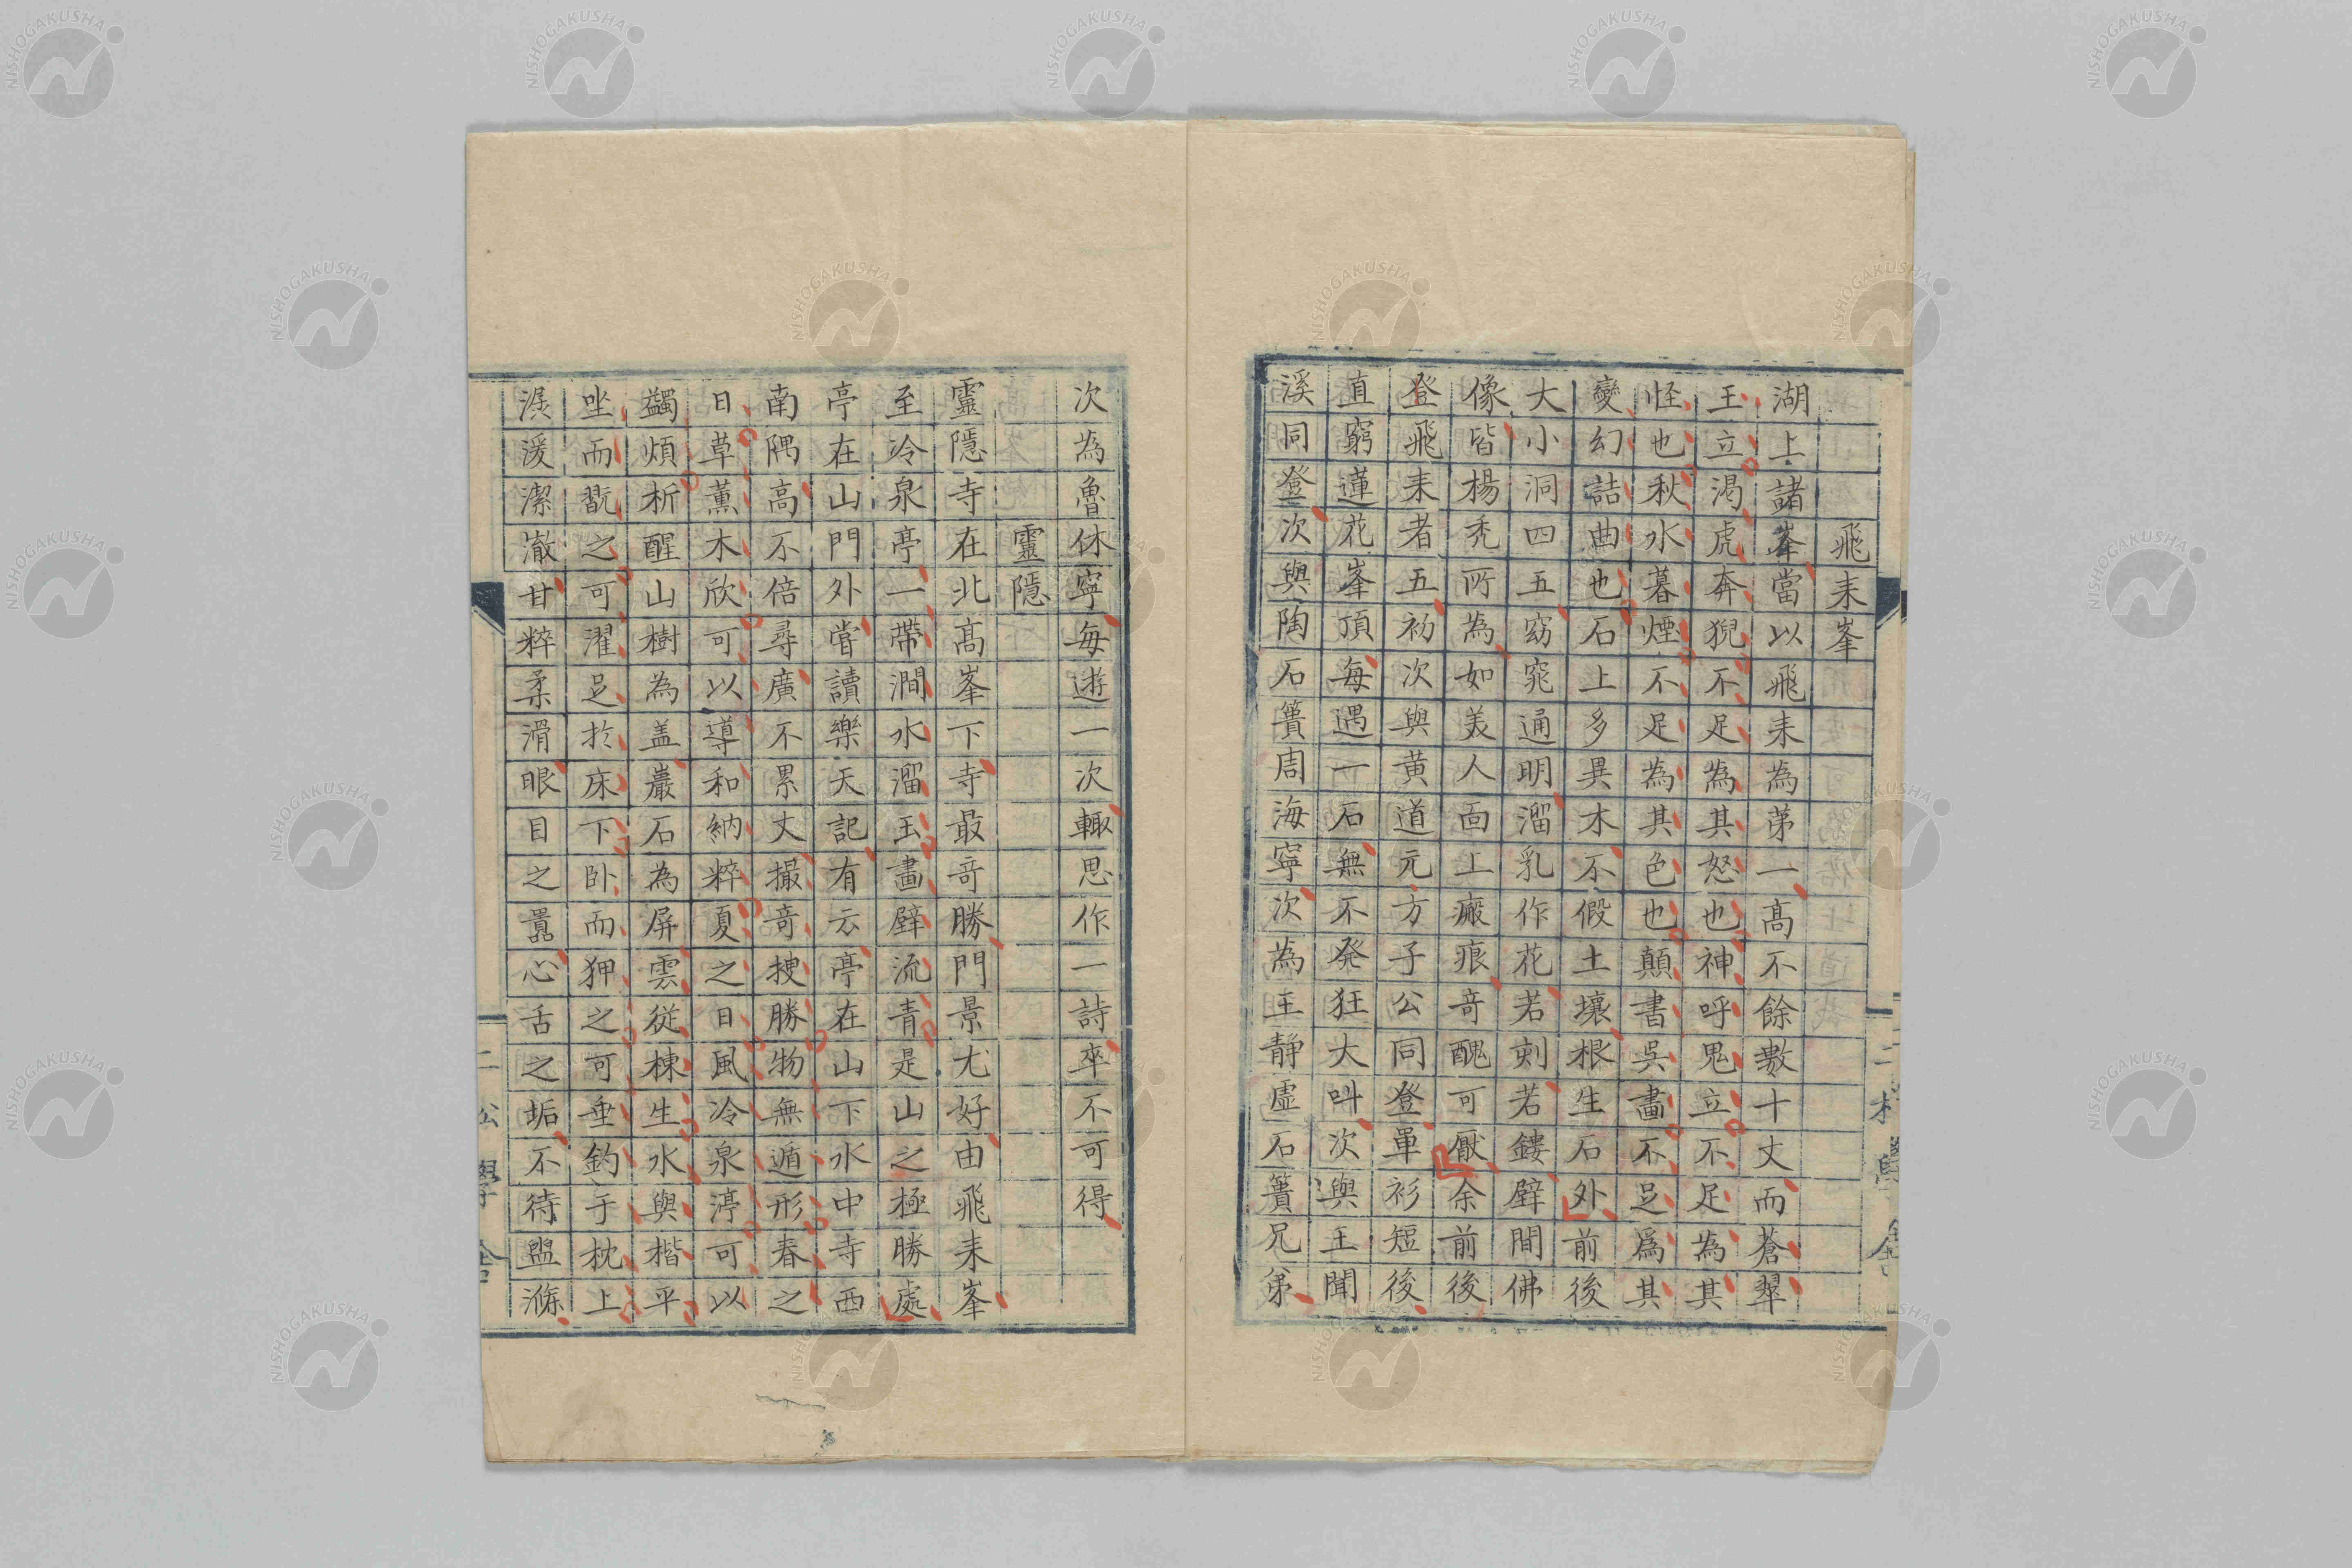 飛来峯
湖上諸峯當以飛来為第一高不餘數十丈而蒼翠
玉立渇虎奔猊不足為其怒也神呼鬼立不足為其
怪也秋水暮煙不足為其色也顛書呉畫不足為其
變幻詰曲也石上多異木不假土壤根生石外前後
大小洞四五窈窕通明溜乳作花若刻若鏤壁間佛
像皆楊禿所為如美人面上瘢痕奇醜可厭余前後
登飛来者五初次與黄道元方子公同登單衫短後
直窮蓮花峯頂毎遇一石無不発狂大叫次與王聞
溪同登次與陶石簣周海寧次為王静虚石簣兄弟
次為魯休寧毎遊一次輙思作一詩卒不可得
靈隱
靈隱寺在北高峯下寺最奇勝門景尤好由飛来峯
至冷泉亭一帶澗水溜玉畫壁流青是山之極勝處
亭在山門外嘗讀樂天記有云亭在山下水中寺西
南隅高不倍尋廣不累丈撮奇捜勝物無遁形春之
日草薫木欣可以導和納粹夏之日風冷泉渟可以
蠲煩析醒山樹為盖巖石為屏雲従棟生水與楷平
坐而翫之可濯足於床下卧而狎之可垂釣于枕上
潺湲潔澈甘粹柔滑眼目之囂心舌之垢不待盥滌
二松學舎
二松學舎
NISHOGAKUSHA